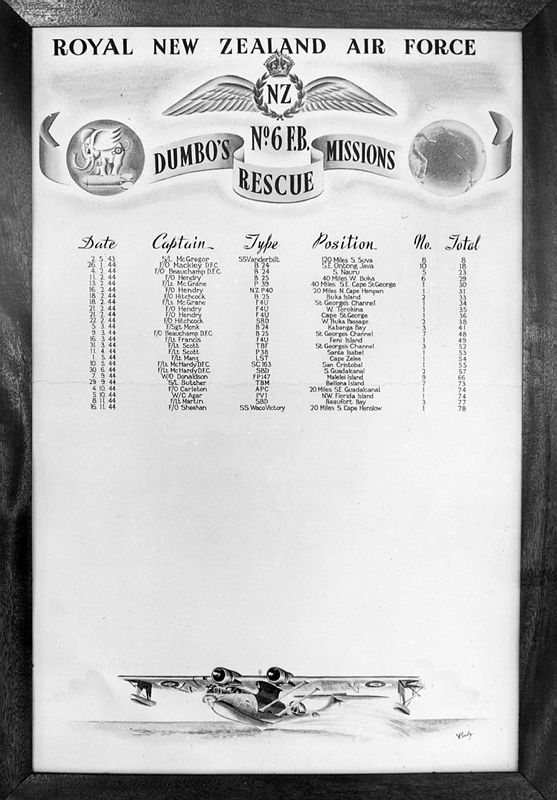 ROYAL NEW ZEALAND AIR FORCE
NZ
DUMBO'S No 6 F.B. MISSIONS
RESCUE
Date Captain Type Position No. Total
2. 5. 43 S/L McGregor S.S.Vanderbilt 120 Miles S. Suva 8 8
26. 1. 44 F/O Mackley D.F.C. B 24 S.E. Ontong Java 10 18
4. 2. 44 F/O Beauchamp D.F.C. B 24 S. Nauru 5 23
11. 2. 44 F/O Hendry B 25 40 Miles W. Buka 6 29
13. 2. 44 F/Lt McGrane P 39 40 Miles S.E. Cape St.George 1 30
16. 2. 44 F/O Hendry N.Z. P40 20 Miles N. Cape Henpan 1 31
18. 2. 44 F/O Hitchcock B 25 Buka Island 2 33
18. 2. 44 F/Lt McGrane F4U St. Georges Channel 1 34
21. 2. 44 F/O Hendry F4U W. Torokina 1 35
21. 2. 44 F/O Hendry F4U Cape St.George 1 36
22. 2. 44 F/O Hitchcock SBD W. Buka Passage 2 38
5. 3. 44 F/Sgt Monk B 24 Kabanga Bay 3 41
9. 3. 44 F/O Beauchamp D.F.C. B 25 St. Georges Channel 7 48
16. 3. 44 F/Lt Francis F4U Feni Island 1 49
31. 3. 44 F/Lt Scott TBF St. Georges Channel 3 52
11. 4. 44 F/Lt Scott P 38 Santa Isabel 1 53
1. 5. 44 F/Lt Mars LST Cape Zelee 1 54
10. 5. 44 F/Lt McHardy D.F.C. SC 163 San Cristobal 1 55
30. 6. 44 F/Lt McHardy D.F.C. SBD S. Guadalcanal 2 57
7. 9. 44 W/O Donaldson FP147 Malelei Island 9 66
29. 9. 44 S/L Butcher TBM Bellona Island 7 73
4. 10. 44 F/O Carleton APC 20 Miles S.E. Guadalcanal 1 74
5. 10. 44 W/C Agar PV1 N.W. Florida Island 1 74
8. 11. 44 F/Lt Martin SBD Beaufort Bay 3 77
16. 11. 44 F/O Sheehan S.S. Waco Victory 20 Miles S. Cape Henslow 1 78